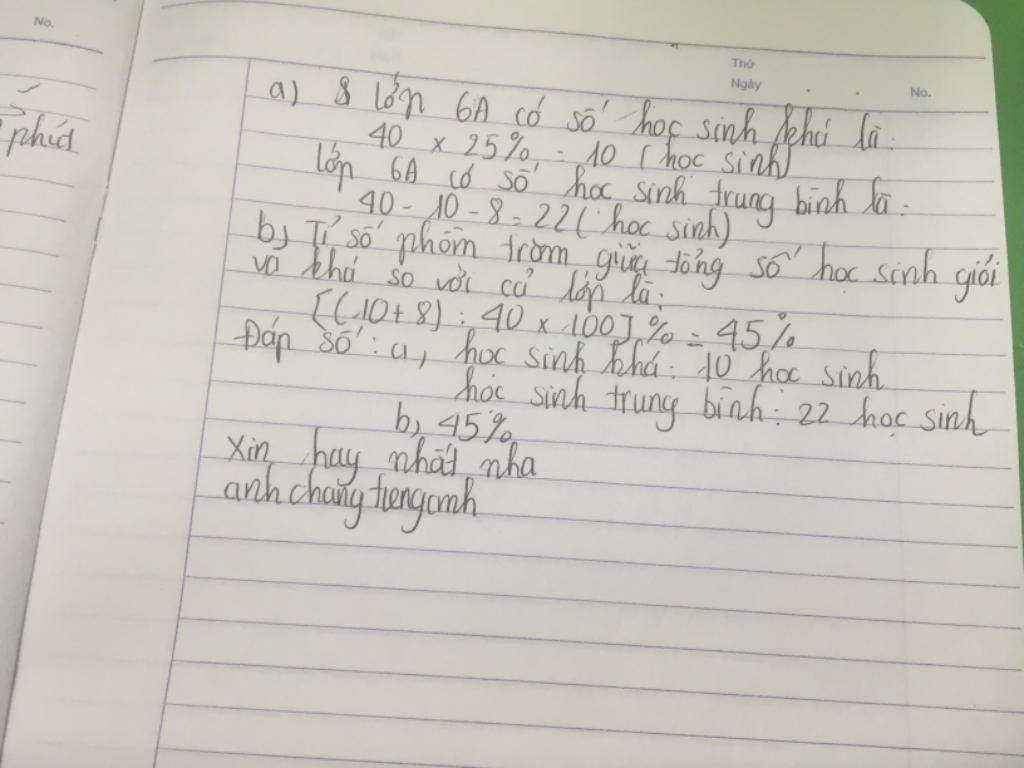 No.
phút
Thứ
Ngày . . No.
a) Lớp 6A có số học sinh khá là:
40 x 25% = 10 (học sinh)
Lớp 6A có số học sinh trung bình là:
40 - 10 - 8 = 22 (học sinh)
b, Tỉ số phồm trơm giữa tổng số học sinh giỏi
và khá so với cả lớp là:
[(10 + 8) : 40 x 100] % = 45%
Đáp số: a, học sinh khá: 10 học sinh
học sinh trung bình: 22 học sinh
b, 45%
Xin hay nhất nha
anhchangtienganh